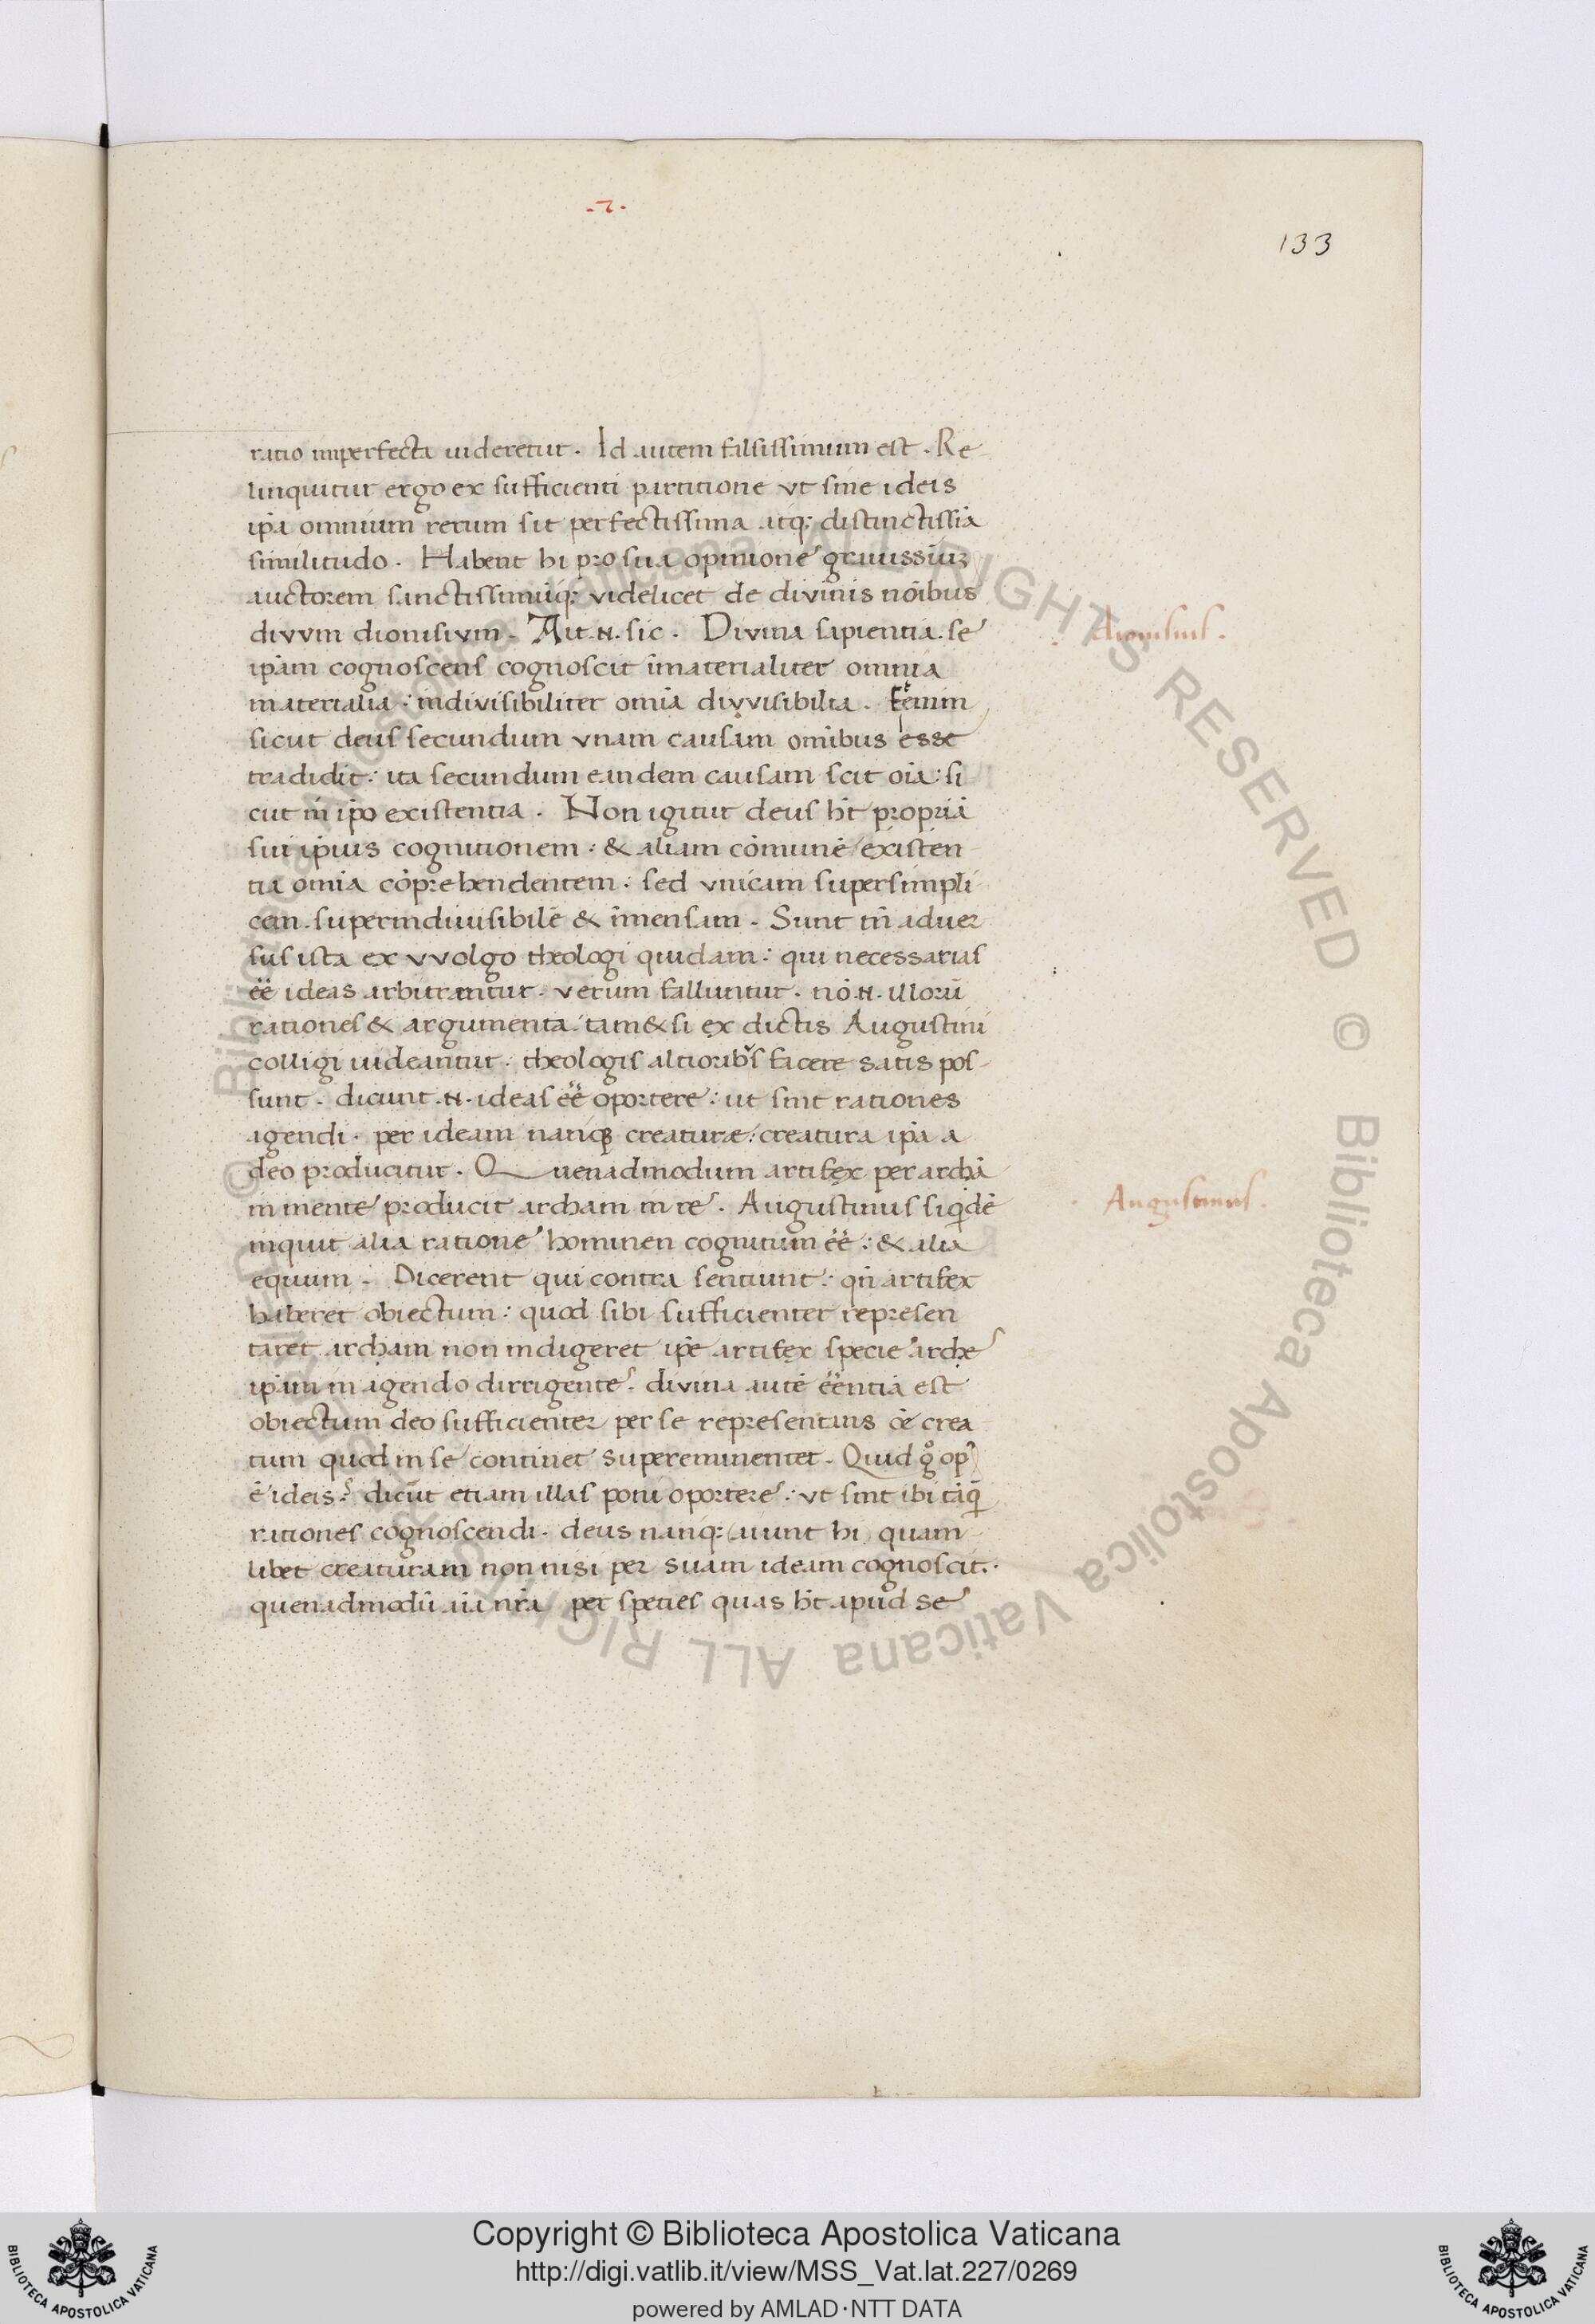 -2-
133
ratio imperfecta uideretur. Id autem falsissimum est. Re
linquitur ergo ex sufficienti partitione vt sine ideis
ip̄a omnium rerum sit perfectissima atq; distinctissīa
similitudo. Habent hi pro sua opinione grauissīuȝ
auctorem sanctissimūq; videlicet de divinis noībus
divvm dionisivm. Ait .N. sic. Divina sapientia se
Dionisius.
ip̄am cognoscens cognoscit īmaterialiter omnia
materialia: indivisibiliter omīa divvisibilia. Etenim
sicut deus secundum vnam causam omībus esse
tradidit: ita secundum eandem causam scit oīa: si
cut in ip̄o existentia. Non igitur deus ht̄ propriā
sui ip̄ius cognitionem: & aliam cōmunē existen
tia omīa cōprehendentem: sed vnicam supersimpli
cem superindiuisibilē & īmensam. Sunt tn̄ aduer
sus ista ex vvolgo theologi quidam: qui necessarias
ēē ideas arbitrantur. verum falluntur. nō .N. illorū
rationes & argumenta tam&si ex dictis Augustini
colligi uideantur. theologis altiorib's facere satis pos-
sunt. dicunt .N. ideas ēē oportere: ut sint rationes
agendi. per ideam nanq; creaturæ: creatura ip̄a a
deo producitur. Quenadmodum artifex per archā
in mente producit archam in re. Augustinus siqidē
Augustinus.
inquit alia ratione hominen cognitum ēē: & alia
equum. Dicerent qui contra sentiunt: qn̄ artifex
haberet obiectum: quod sibi sufficienter represen
taret archam non indigeret ip̄e artifex specie arche
ip̄um in agendo dirrigente. divina autē ēēntia est
obiectum deo sufficienter per se representans oē crea
tum quod in se continet supereminenter. Quid gͦ op'
ē ideis? dicūt etiam illas poni oportere: vt sint ibi tāq̄
rationes cognoscendi. deus nanq; aiunt hi quam-
libet creaturam non nisi per suam ideam cognoscit.
quenadmodū aīa nr̄a per speties quas ht̄ apud se
Copyright © Biblioteca Apostolica Vaticana
http://digi.vatlib.it/view/MSS_Vat.lat.227/0269
powered by AMLAD·NTT DATA
BIBLIOTECA APOSTOLICA VATICANA
BIBLIOTECA APOSTOLICA VATICANA
© Biblioteca Apostolica Vaticana ALL RIGHTS RESERVED © Biblioteca Apostolica Vaticana ALL RIGHTS RESERVED